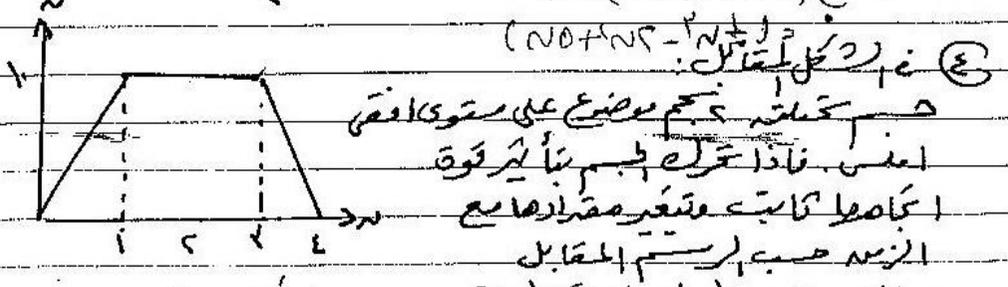 ٤ في الشكل المقابل :
جسم كتلته ٢ كجم موضوع على مستوى افقي
املس . فاذا تحرك الجسم بتأثير قوة
اتجاهها ثابت وتتغير مقدارها مع
الزمن حسب الرسم المقابل
١٠
١ ٢ ٣ ٤ ن